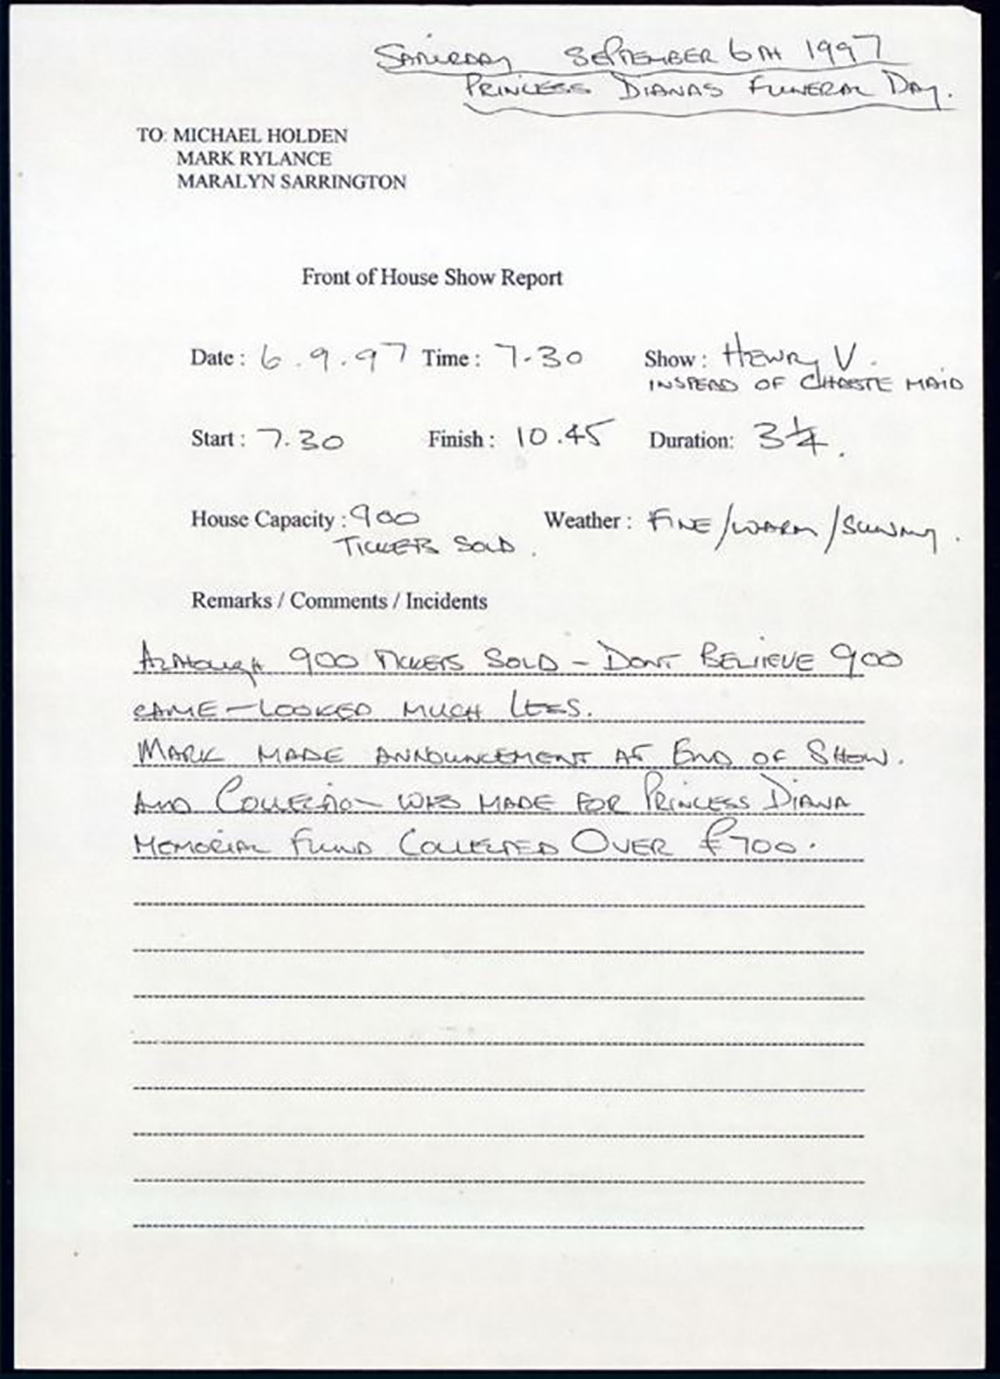 SATURDAY SEPTEMBER 6TH 1997
PRINCESS DIANAS FUNERAL DAY.
TO: MICHAEL HOLDEN
MARK RYLANCE
MARALYN SARRINGTON
Front of House Show Report
Date : 6.9.97 Time : 7.30 Show : HENRY V.
INSTEAD OF CHASTE MAID
Start : 7.30 Finish : 10.45 Duration: 3¼.
House Capacity : 900 Weather : FINE/WARM/SUNNY.
TICKETS SOLD.
Remarks / Comments / Incidents
ALTHOUGH 900 TICKETS SOLD - DONT BELIEVE 900
CAME - LOOKED MUCH LESS.
MARK MADE ANNOUNCEMENT AT END OF SHOW.
AND COLLECTION WAS MADE FOR PRINCESS DIANA
MEMORIAL FUND COLLECTED OVER £700.